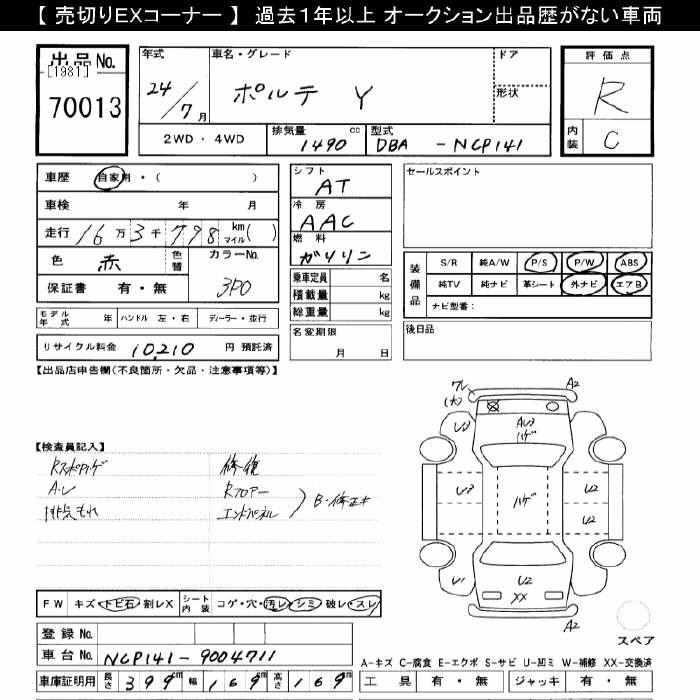 【 売切りEXコーナー 】 過去1年以上 オークション出品歴がない車両
出品 No.
[1981]
70013
年式
24/7月
車名・グレード
ポルテ Y
ドア
形状
2WD・4WD
排気量 1490 cc
型式 DBA -NCP141
評価点
R
内装 C
車歴 自家用・( )
車検 年 月
走行 16万3千798 km マイル( )
色 赤 色替
カラーNo. 3P0
保証書 有・無
シフト AT
冷房 AAC
燃料 ガソリン
乗車定員 名
積載量 kg
総重量 kg
名変期限 月 日
セールスポイント
装備品
S/R 純A/W P/S P/W ABS
純TV 純ナビ 革シート 外ナビ エアB
ナビ型番:
後日品
モデル年式 年 ハンドル 左・右 ディーラー・並行
リサイクル料金 10,210 円 預託済
【出品店申告欄(不良箇所・欠品・注意事項等)】
【検査員記入】
A・レ
排気もれ
修復
Rフロアー
エンドパネル
B・修正キ
A2
U3
AU3
ハゲ
U3
ハゲ
U2
U2
U1
U2
XX
A2
スペア
FW キズ・トビ石・割レX
シート内装 コゲ・穴・汚レ・シミ・破レ・スレ
登録 No.
車台 No. NCP141-9004711
車庫証明用 長さ 399 cm 幅 169 cm 高さ 169 cm
A-キズ C-腐食 E-エクボ S-サビ U-凹ミ W-補修 XX-交換済
工具 有・無 ジャッキ 有・無